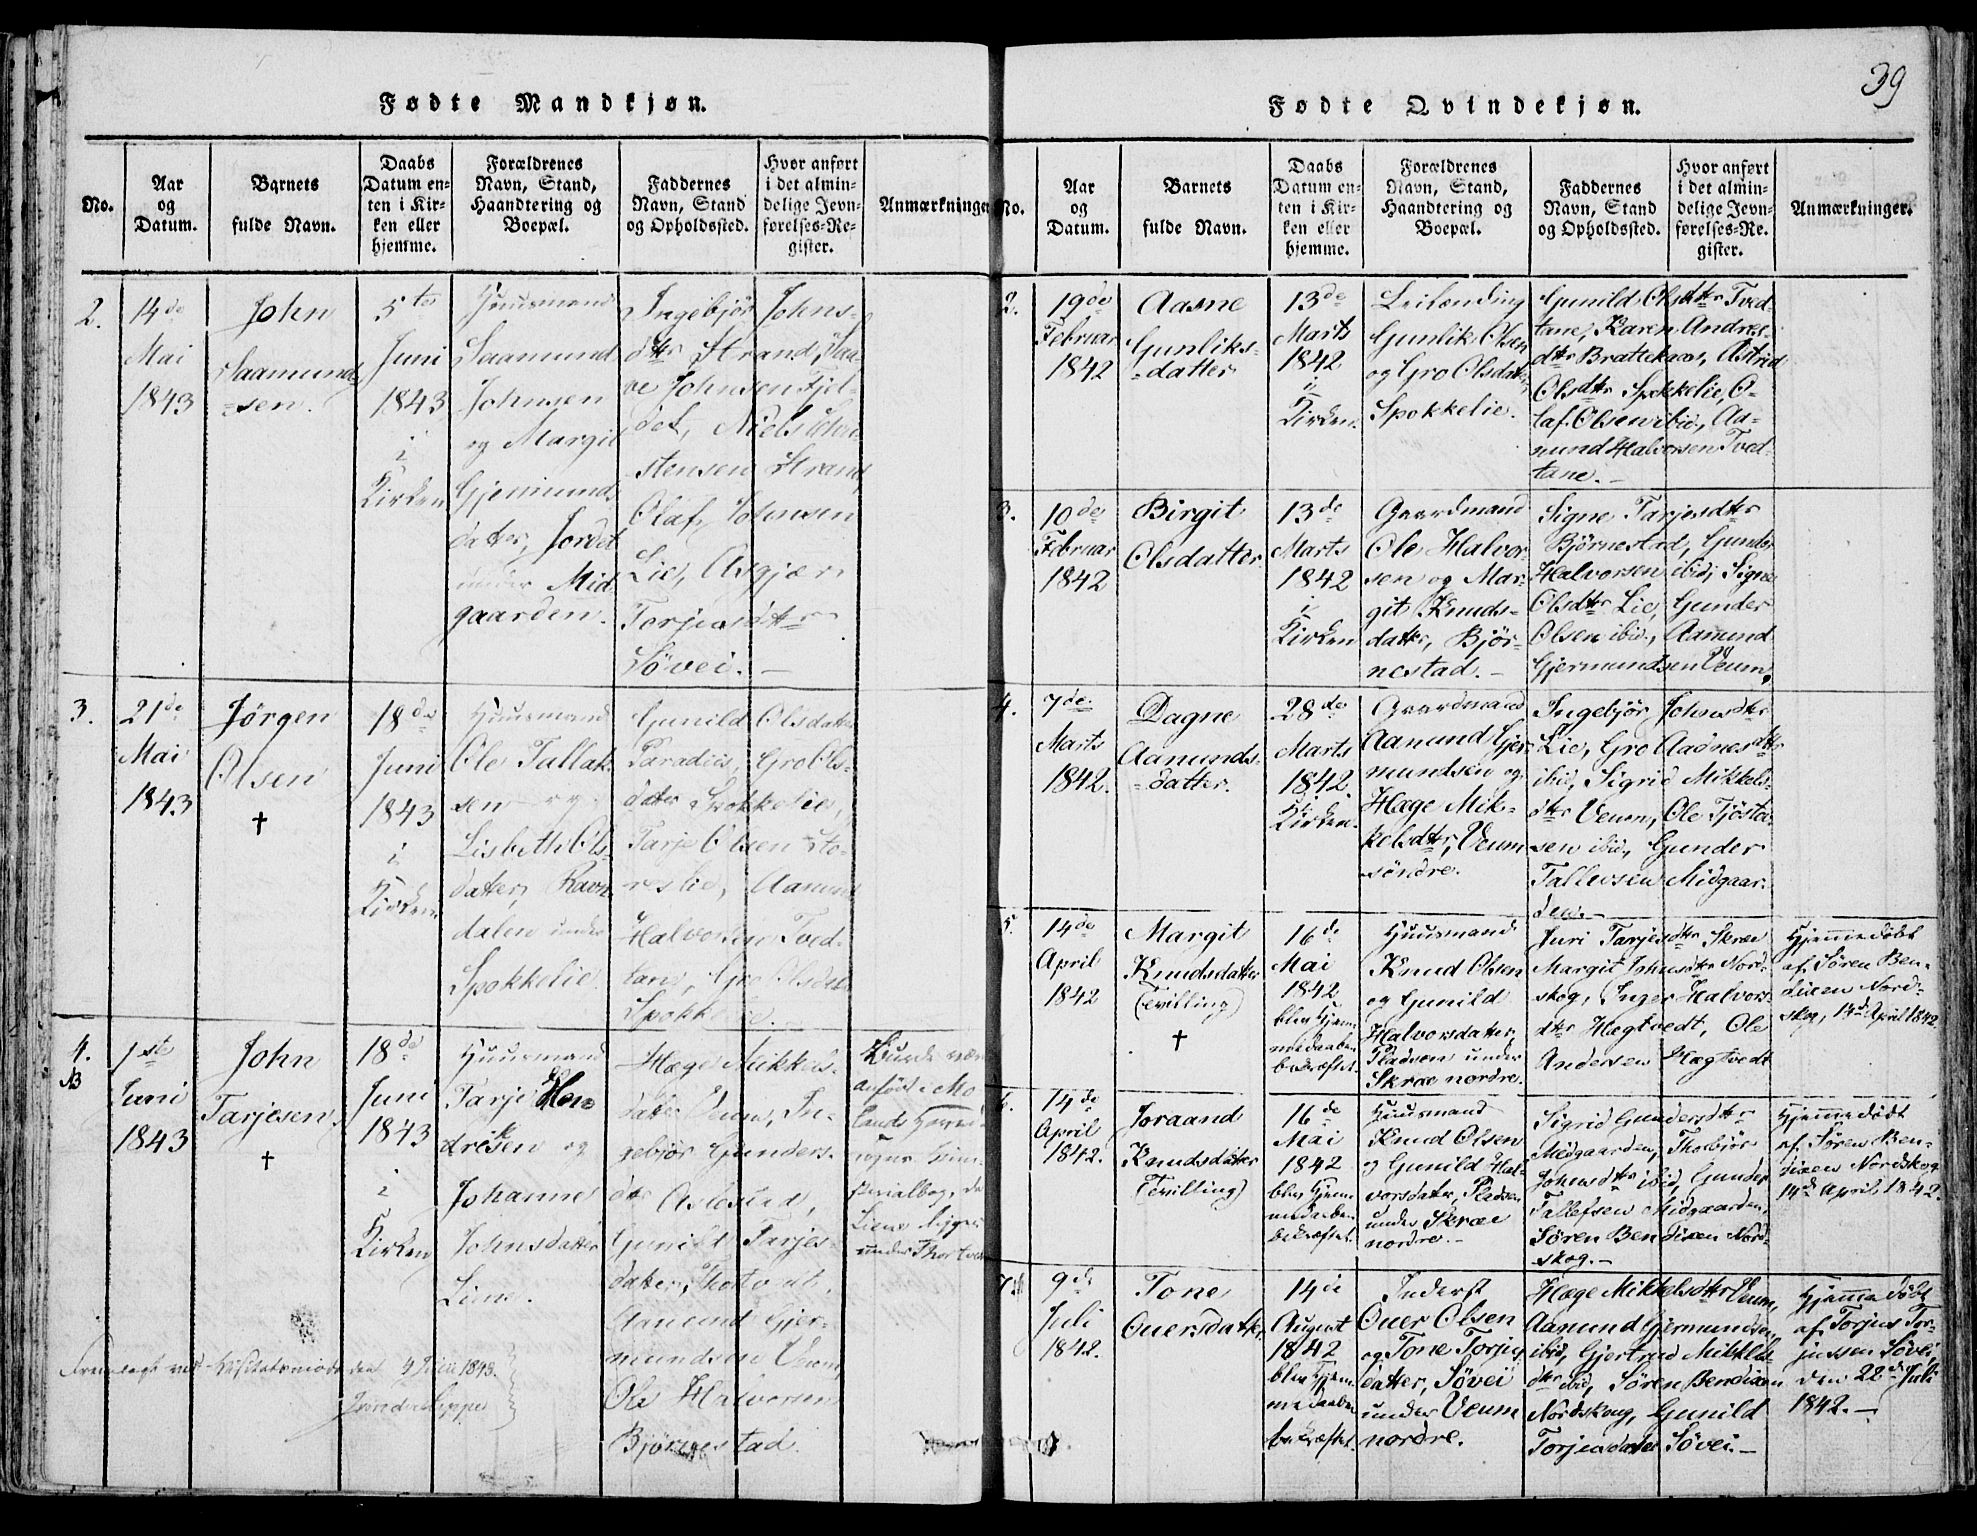 Fødte Mandkjøn.
No.
Aar
og
Datum.
Barnets
fulde Navn.
Daabs
Datum en-
ten i Kir-
ken eller
hjemme.
Forældrenes
Navn, Stand,
Haandtering og
Boepæl.
Faddernes
Navn, Stand
og Opholdssted.
Hvor anført
i det almin-
delige Jevn-
førelses-Re-
gister.
Anmærkninger
2.
14de
Mai
1843
John
Saamunds
-sen.
5te
Juni
1843
i
Kirken
Huusmand
Saamund
Johnsen
og Margit
Gjermunds
datter, Jordet
under Mid
gaarden.
Ingebjør Johns-
dtr Strand,
ve Johnsen Fjel-
det, Niels
stensen Strand,
Olaf Johnsen
Lie, Asgjær
Torjusdtr
Søvei. -
3.
21de
Mai
1843
Jørgen
Olsen
†
18de
Juni
1843
i
Kirken
Huusmand
Ole Tallak-
sen og
Lisbeth Ols-
datter, Ravn
dalen under
Spokkelie.
Gunild Olsdatter
Paradiis, Gro Ols-
datter Spokkelie,
Tarje Olsen Sto-
reslie, Aanund
Halvorsen Tved-
tan, Gro Olsdatter
Spokkelie.
4.
NB
1ste
Juni
1843
John
Tarjesen.
†
18de
Juni
1843
i
Kirken
Huusmand
Tarje Hen
driksen og
Johanne
Johnsdatter
Liene.
Hæge Mikkels-
datter Veum, In-
gebjør Gunders-
dtr Aslestad,
Gunild Tarjes-
datter, Thortvedt,
Aanund Gjer-
mundsen Veum,
Ole Halvorsen
Bjørnestad.
Burde være
anført i Mo
lands Hoved-
sogns
sterialbog, da
Liene ligger
under Thortvedt
Fremlagt ved Visitatsmøde den 4 Juli 1843.
Fødte Qvindekjøn.
39
No.
Aar
og
Datum.
Barnets
fulde Navn.
Daabs
Datum en-
ten i Kir-
ken eller
hjemme.
Forældrenes
Navn, Stand,
Haandtering og
Boepæl.
Faddernes
Navn, Stand
og Opholdssted.
Hvor anført
i det almin-
delige Jevn-
førelses-Re-
gister.
Anmærkninger.
2.
19de
Februar
1842
Aasne
Gunliks-
-datter
13de
Marts
1842
i
Kirken
Leilænding
Gunlik Olsen
og Gro Olsdatter
Spokkelie.
Gunild Olsdtr Tved-
tane, Karen Andres-
dtr Brattekaas, Astrid
Olsdtr Spokkelie, O-
laf Olsen ibid., Aa-
nund Halvorsen Tved-
tane. -
3.
10de
Februar
1842
Birgit
Olsdatter
13de
Marts
1842
i
Kirken
Gaardmand
Ole Halvor-
sen og Mar-
git Knuds-
datter, Bjør-
nestad. -
Signe Tarjesdtr
Bjørnestad, Gunder
Halvorsen ibid, Signe
Olsdtr Lie, Gunder
Olsen ibid., Aanund
Gjermundsen Veum,
4.
7de
Marts
1842.
Dagne
Aanunds-
-datter.
28de
Marts
1842.
i
Kirken.
Gaardmand
Aanund Gjer-
mundsen og
Hæge Mik-
kelsdtr, Veum
søndre.
Ingebjør Johnsdtr
Lie, Gro Aadnesdtr
ibid, Sigrid Mikkels-
dtr Veum, Ole Tjøsta-
sen ibid, Gunder
Tallevsen Midgaar-
den. -
5.
14de
April
1842
Margit
Knudsdatter
(Tvilling)
†
16de
Mai
1842
blev Hjem-
medaaben
bekræftet.
Huusmand
Knud Olsen
og Gunild
Halvorsdatter,
Pladsen under
Skræe nordre.
Juri Tarjesdtr Skræe
Margit Johnsdtr Nord-
skog, Inger Halvors-
dtr Hægtvedt, Ole
Andersen Hægtvedt
Hjemmedøbt
af Søren Ben-
dixen Nord-
skog, 14de April 1842.
6.
14de
April
1842.
Joraand
Knudsdatter
(Tvilling)
16de
Mai
1842
blev Hjem-
medaaben
bekræftet.
Huusmand
Knud Olsen
og Gunild Hal-
vorsdatter, Pladsen
under Skræe
nordre. -
Sigrid Gundersdtr
Midgaarden, Thorbjør
Johnsdtr ibid, Gunder
Tallefsen Midgaarden,
Søren Bendixen Nord-
skog. -
Hjemmedøbt
af Søren Ben-
dixen Nordskog
14de April 1842.
7.
9de
Juli
1842.
Tone
Ouersdatter
14de
August
1842
blev Hjem-
medaaben
bekræftet.
Inderst
Ouer Olsen
og Tone Torjus
datter, Søvei
under Veum
nordre.
Hæge Mikkelsdtr Veum,
Aanund Gjermundsen
ibid, Gjertrud Mikkels-
dtr ibid, Søren Bendixen
Nordskoug, Gunild
Torjusdatter Søvei. -
Hjemmedøbt
af Torjus Tor-
jussen Søvei,
den 22de Juli
1842. -